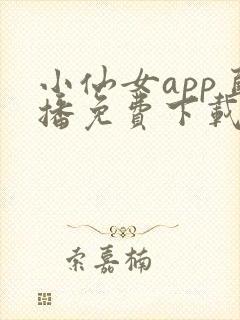 小仙女app直
播免费下載
索嘉楠